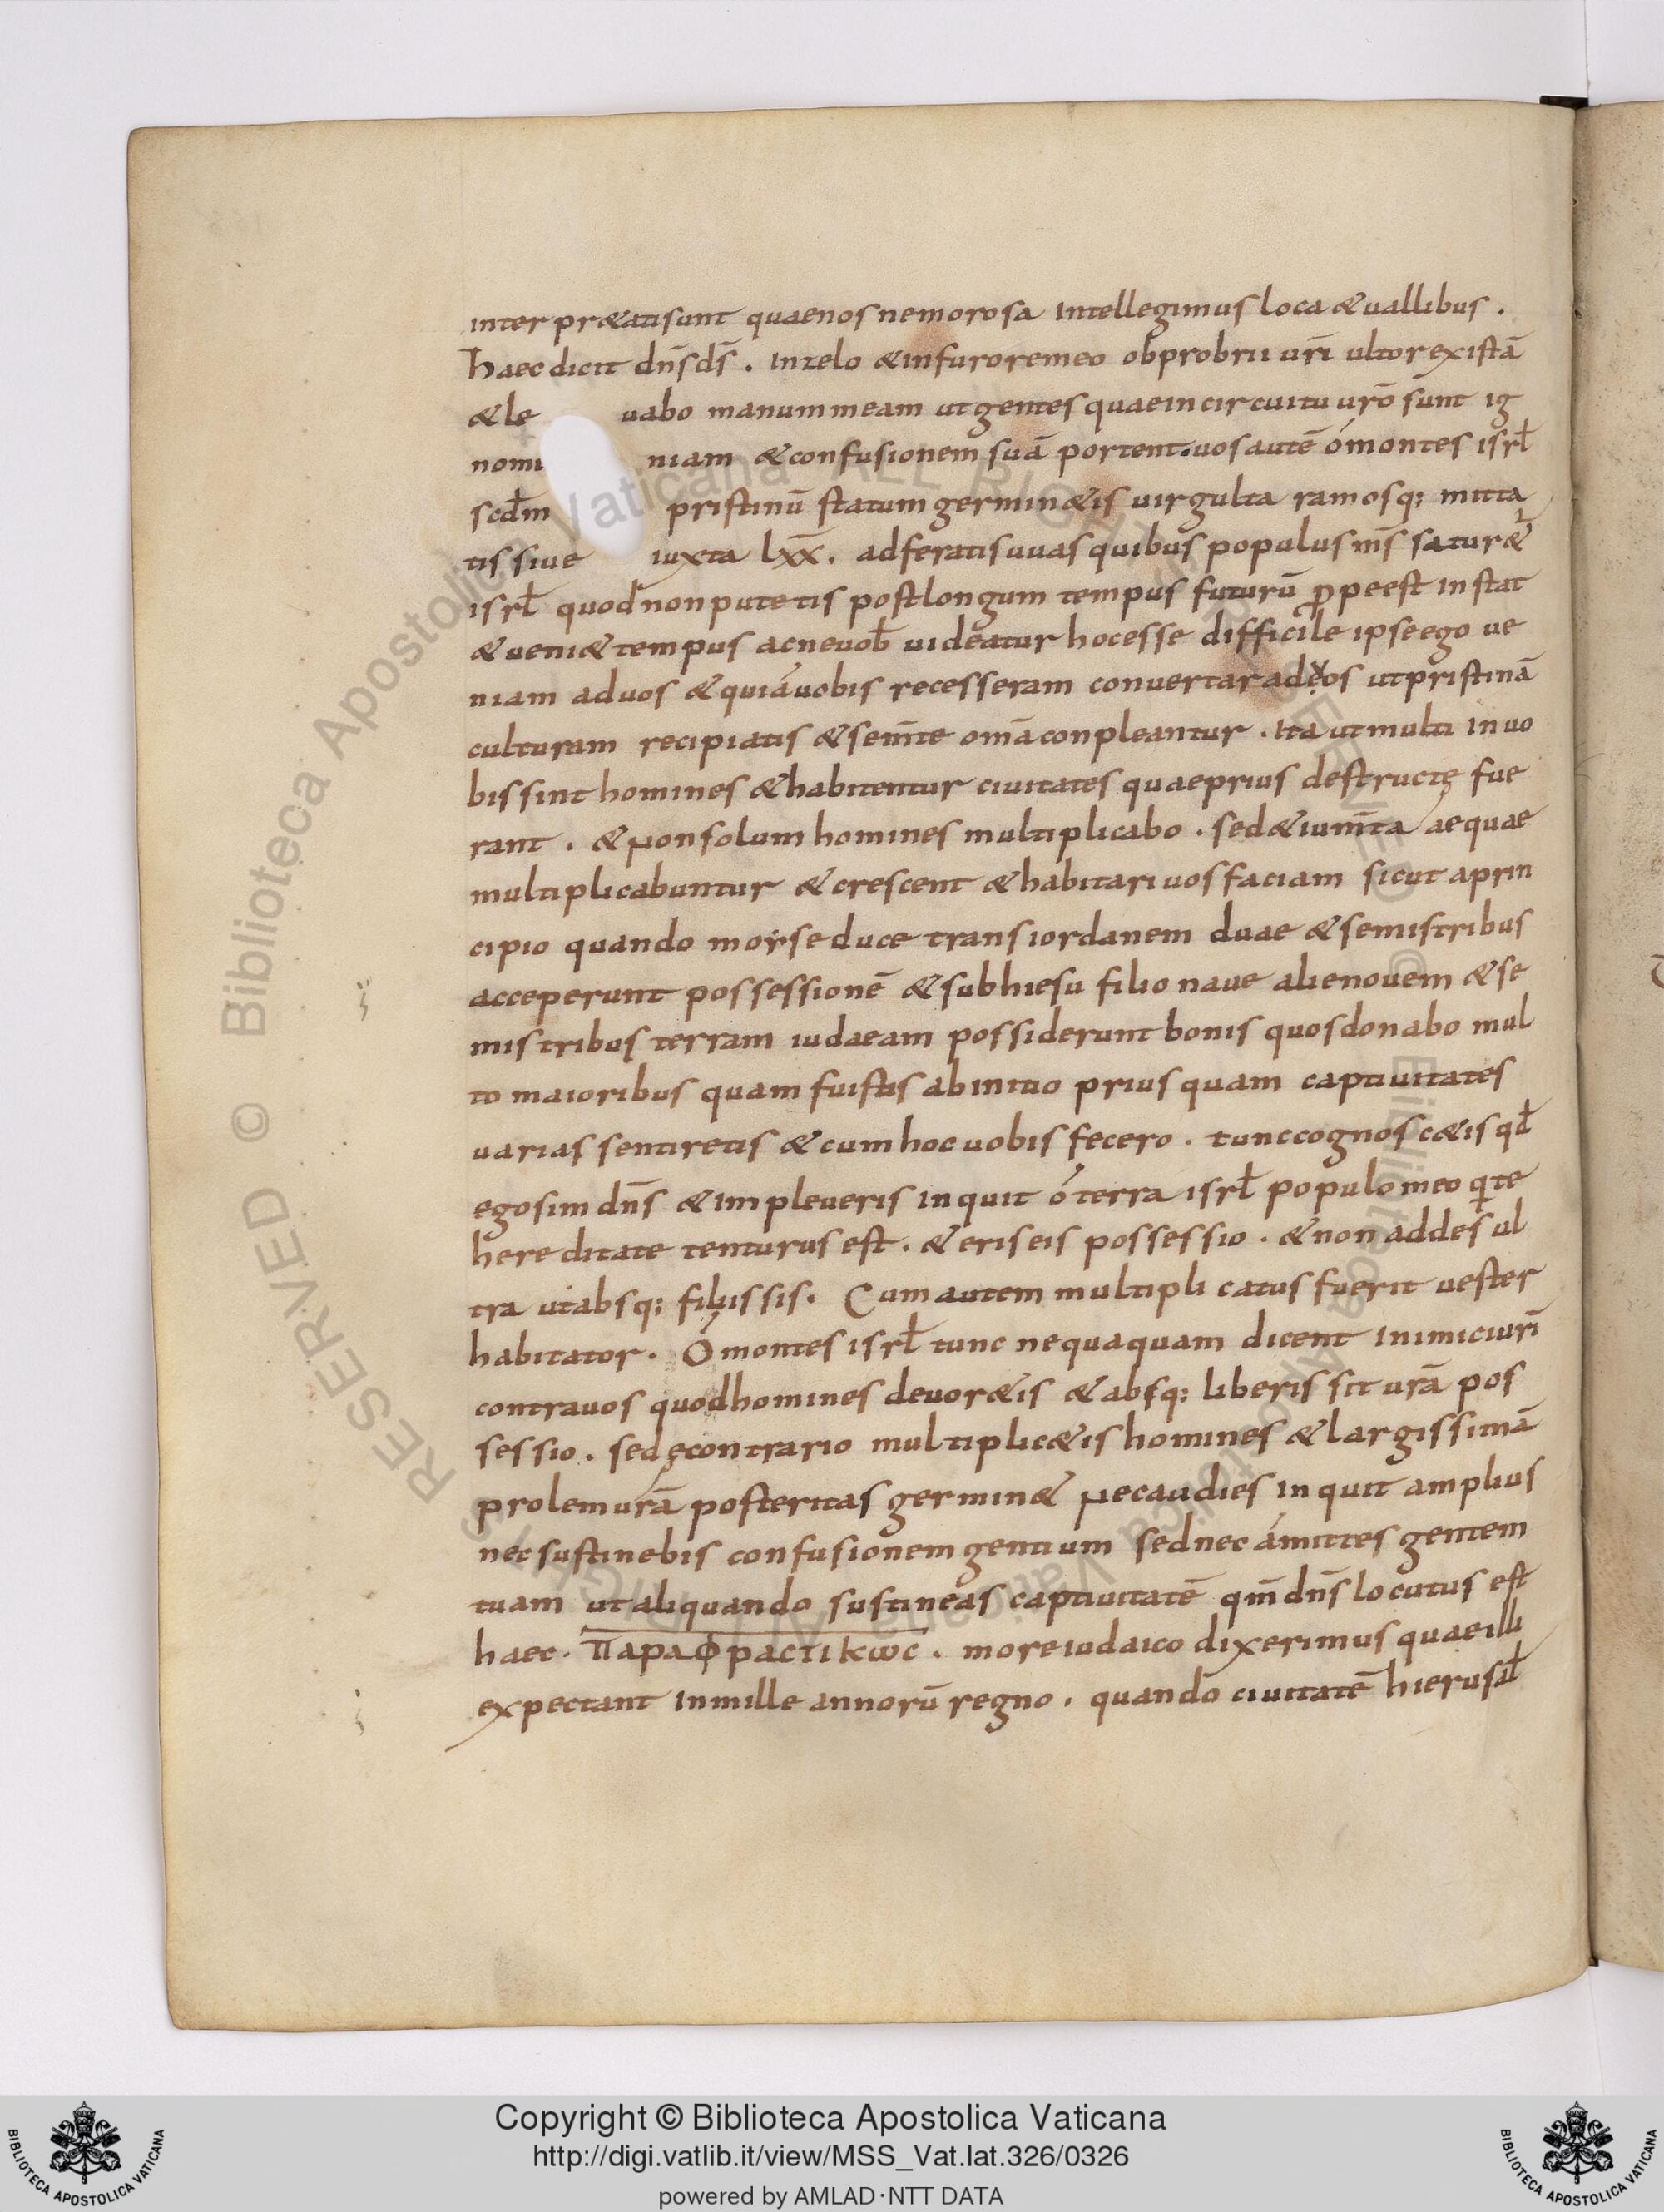 interpr&atisunt quaenos nemorosa intellegimus loca &uallibus .
haec dicit dn̄s ds̄ . inzelo &infuroremeo obprobrii uri̅ ultor existā
&le uabo manum meam ut gentes quae in circuitu uro̅ sunt ig
nomi niam &confusionem suā portent. uos autē ó montes isrł
scđm pristinū statum germin&is uirgulta ramosq; mitta
tis siue iuxta lxx̄. adferatis uuas quibus populus ms̄ satur&ur
isrł quod non putetis post longum tempus futurū ꝓpe est instat
&ueni& tempus ac neuoƀ uideatur hoc esse difficile ipse ego ue
niam ad uos &quia áuobis recesseram conuertar ad uos ut pristinā
culturam recipiatis &sem̄te om̄a conpleantur . ita ut multi in uo
bis sint homines &habitentur ciuitates quae prius destructę fue
rant . &non solum homines multiplicabo . sed &ium̄ta aequae
multiplicabuntur &crescent &habitari uos faciam sicut aprin
cipio quando moyse duce trans iordanem duae &semis tribus
acceperunt possessionē &sub hiesu filio naue alie nouem &se
mis tribus terram iudaeam possiderunt bonis quos donabo mul
to maioribus quam fuistis ab initio prius quam captiuitates
uarias sentiretis &cum hoc uobis fecero . tunc cognosc&is qđ
ego sim dn̄s &impleueris inquit ó terra isrł populo meo qͥ te
hereditate tenturus est . &eris eis possessio . &non addes ul
tra ut absq; filiis sis. Cum autem multiplicatus fuerit uester
habitator . Ó montes isrł tunc nequaquam dicent inimici uri̅
contra uos quod homines deuor&is &absq; liberis sit ura̅ pos
sessio . sed econtrario multiplic&is homines &largissimā
prolem ura̅ posteritas germin& nec audies inquit amplius
nec sustinebis confusionem gentium sed nec ámittes gentem
tuam ut aliquando sustineas captiuitatē qm̄ dn̄s locutus est
haec . ΠΑΡΑΦΡΑCΤΙΚωC . more iudaico dixerimus quae illi
expectant in mille annorū regno . quando ciuitatē hierusał
Copyright © Biblioteca Apostolica Vaticana
http://digi.vatlib.it/view/MSS_Vat.lat.326/0326
powered by AMLAD·NTT DATA
BIBLIOTECA APOSTOLICA VATICANA
BIBLIOTECA APOSTOLICA VATICANA